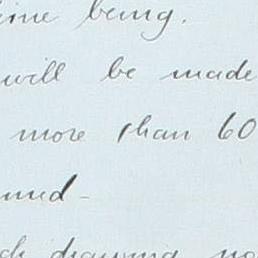 time being.
will be made
more than 60
drawing no